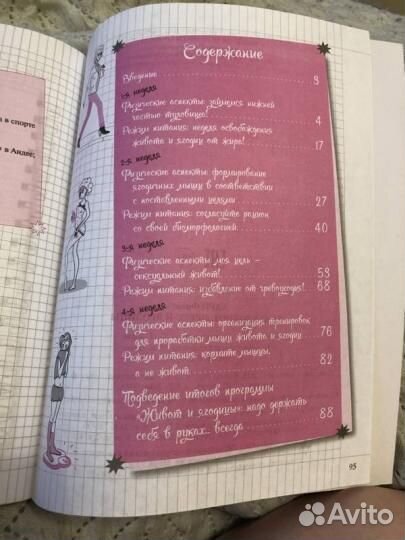 а в спорте
в Андае;
Содержание
Введение 3
1-я неделя
Физические аспекты: займемся нижней
частью туловища! 4
Режим питания: неделя освобождения
живота и ягодиц от жира! 17
2-я неделя
Физические аспекты: формирование
ягодичных мышц в соответствии
с поставленными целями 27
Режим питания: согласуйте рацион
со своей биоморфологией 40
3-я неделя
Физические аспекты: моя цель –
сексуальный живот! 53
Режим питания: избавление от тревоги! 68
4-я неделя
Физические аспекты: организация тренировок
для проработки мышц живота и ягодиц 76
Режим питания: кормите мышцы,
а не живот 82
Подведение итогов программы
«Живот и ягодицы»: надо держать
себя в руках... всегда 88
95
Avito